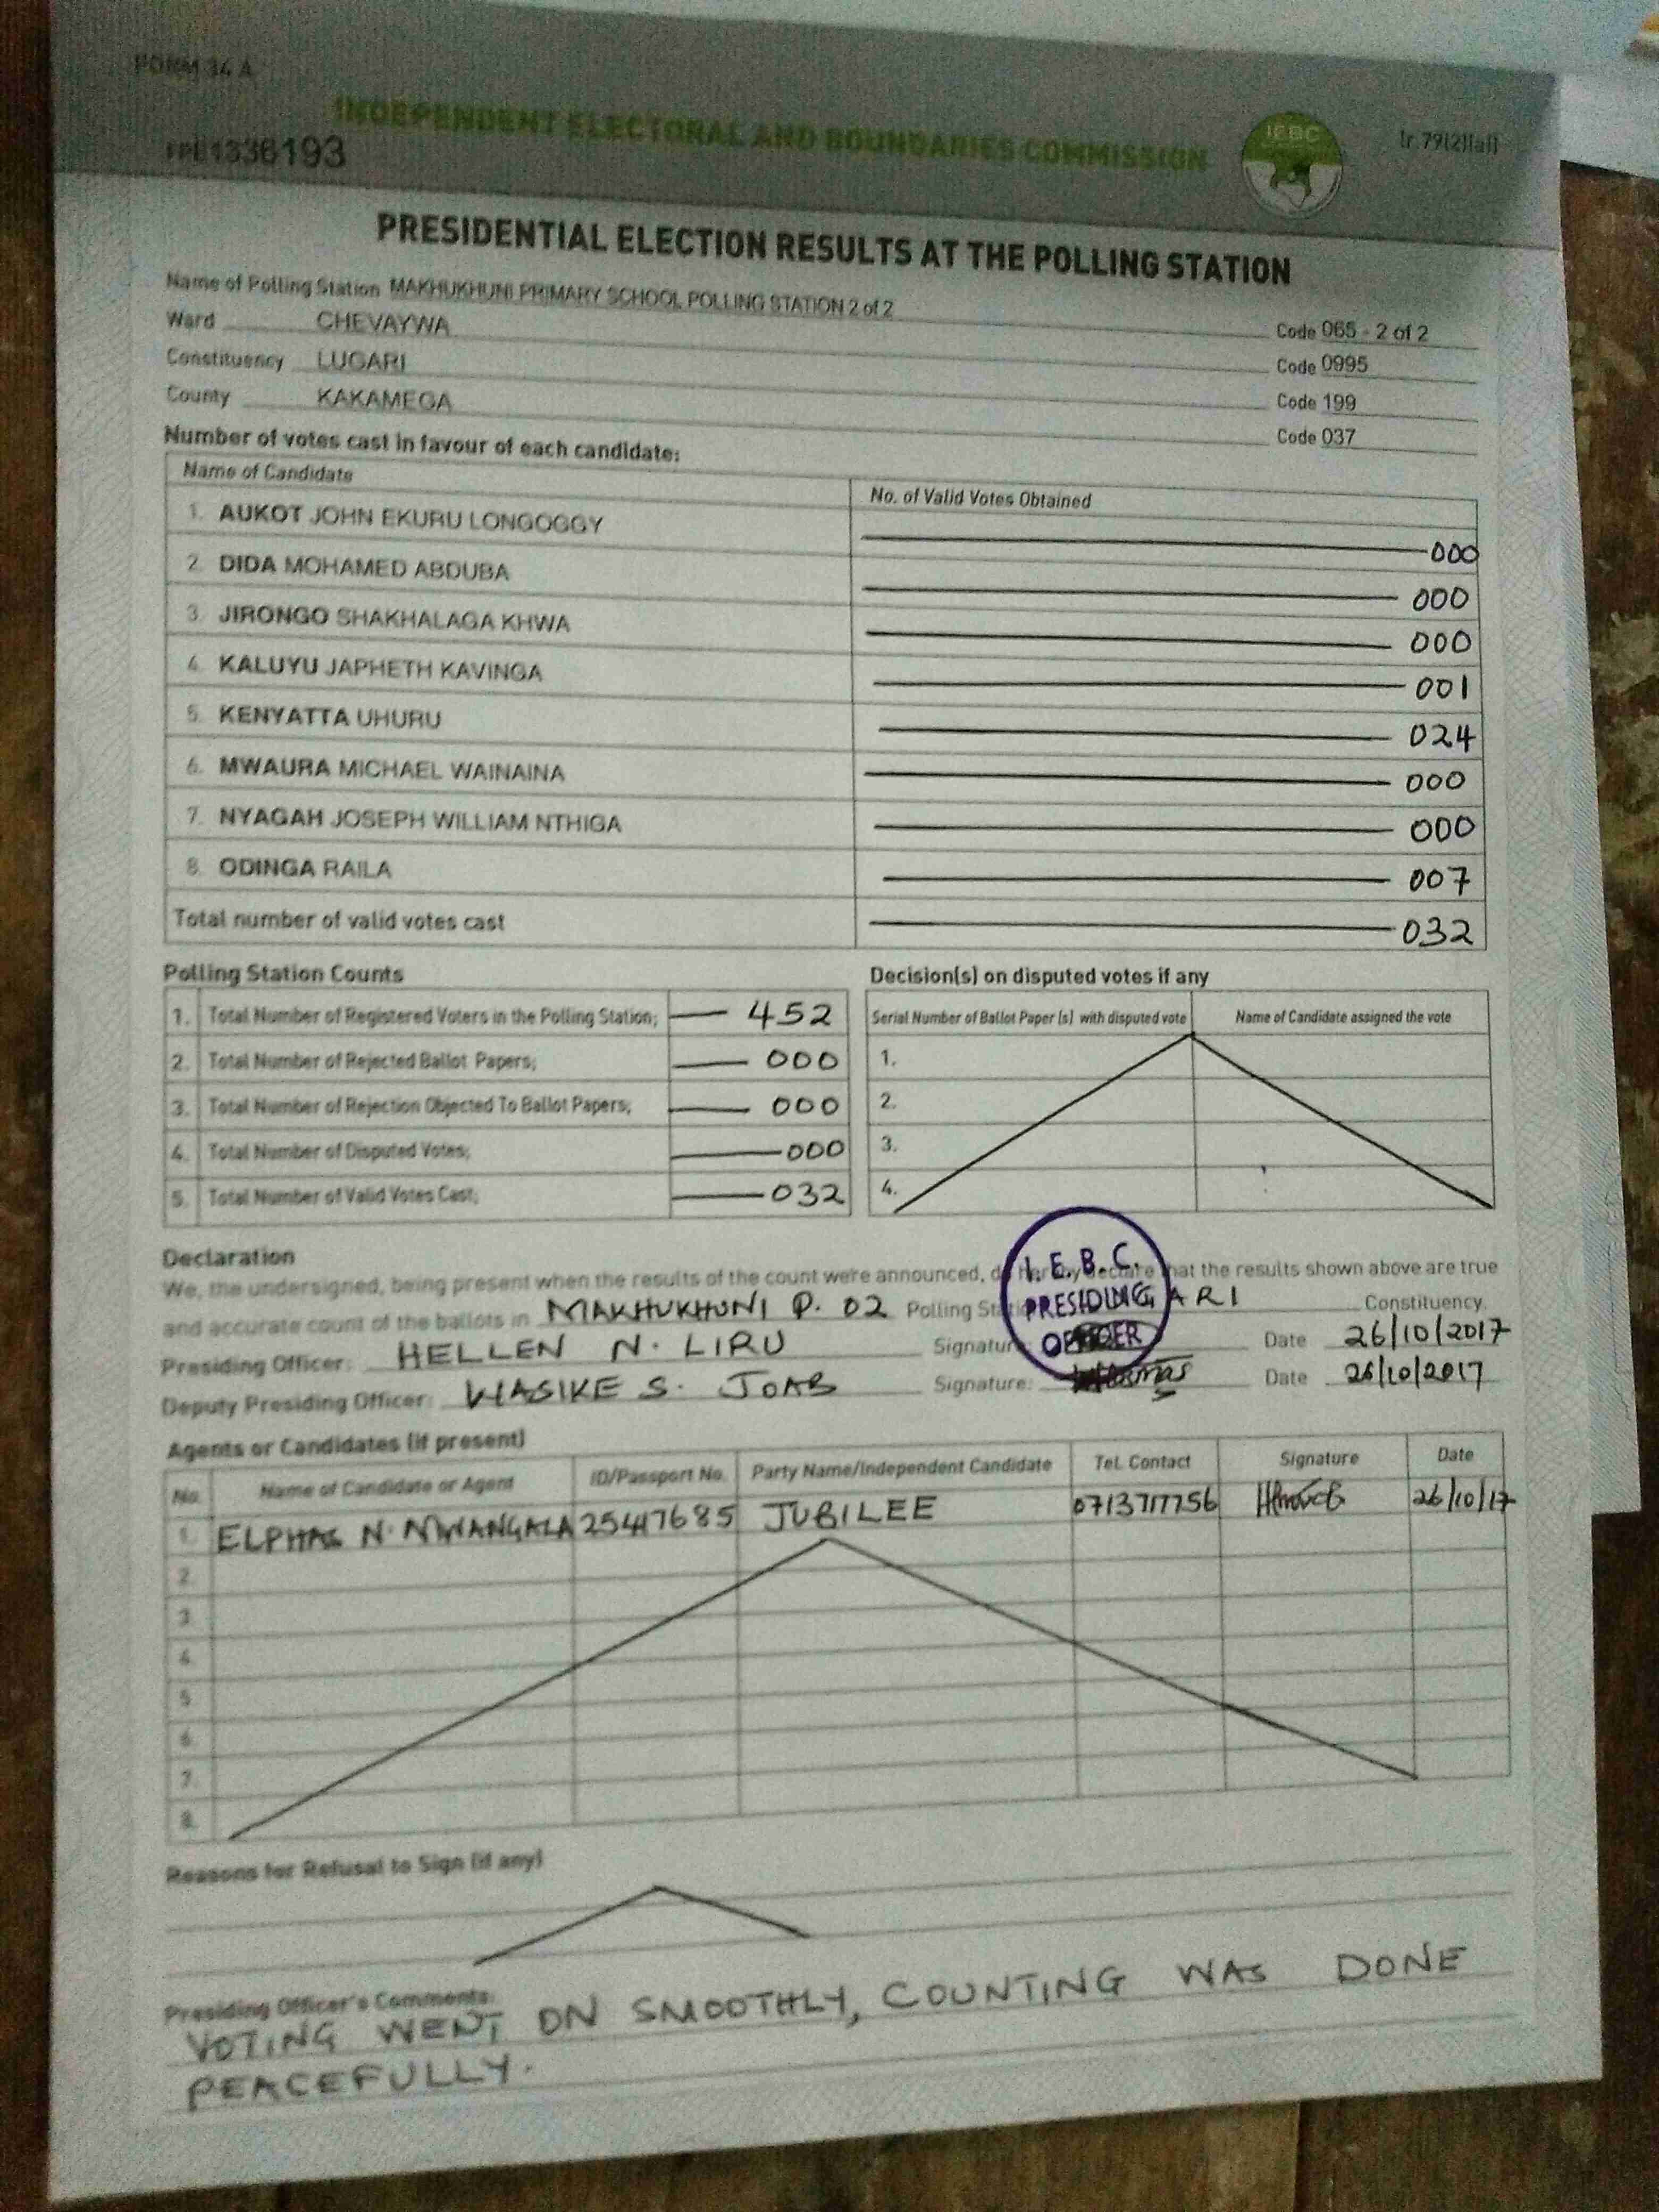 FORM 34 A
INDEPENDENT ELECTORAL AND BOUNDARIES COMMISSION
IEBC
(r. 79(2)(a))
1336193
PRESIDENTIAL ELECTION RESULTS AT THE POLLING STATION
Name of Polling Station MAKHUKHUNI PRIMARY SCHOOL POLLING STATION 2 of 2 Code 065 - 2 of 2
Ward CHEVAYWA Code 0995
Constituency LUGARI Code 199
County KAKAMEGA Code 037
Number of votes cast in favour of each candidate:
Name of Candidate No. of Valid Votes Obtained
1. AUKOT JOHN EKURU LONGOGGY 000
2. DIDA MOHAMED ABDUBA 000
3. JIRONGO SHAKHALAGA KHWA 000
4. KALUYU JAPHETH KAVINGA 001
5. KENYATTA UHURU 024
6. MWAURA MICHAEL WAINAINA 000
7. NYAGAH JOSEPH WILLIAM NTHIGA 000
8. ODINGA RAILA 007
Total number of valid votes cast 032
Polling Station Counts
1. Total Number of Registered Voters in the Polling Station; 452
2. Total Number of Rejected Ballot Papers; 000
3. Total Number of Rejection Objected To Ballot Papers; 000
4. Total Number of Disputed Votes; 000
5. Total Number of Valid Votes Cast; 032
Decision(s) on disputed votes if any
Serial Number of Ballot Paper (s) with disputed vote Name of Candidate assigned the vote
1.
2.
3.
4.
Declaration
We, the undersigned, being present when the results of the count were announced, do hereby declare that the results shown above are true
and accurate count of the ballots in MAKHUKHUNI P. 02 Polling ARI Constituency.
I. E. B. C.
PRESIDING
OFFICER
Presiding Officer: HELLEN N. LIRU Signature: Date 26/10/2017
Deputy Presiding Officer: WASIKE S. JOAB Signature: Date 26/10/2017
Agents or Candidates (if present)
No. Name of Candidate or Agent ID/Passport No. Party Name/Independent Candidate Tel. Contact Signature Date
1. ELPHAS N. JUBILEE 0713717756 26/10/17
2.
3.
4.
5.
6.
7.
8.
Reasons for Refusal to Sign (if any)
Presiding Officer's Comments:
VOTING WENT ON SMOOTHLY, COUNTING WAS DONE
PEACEFULLY.